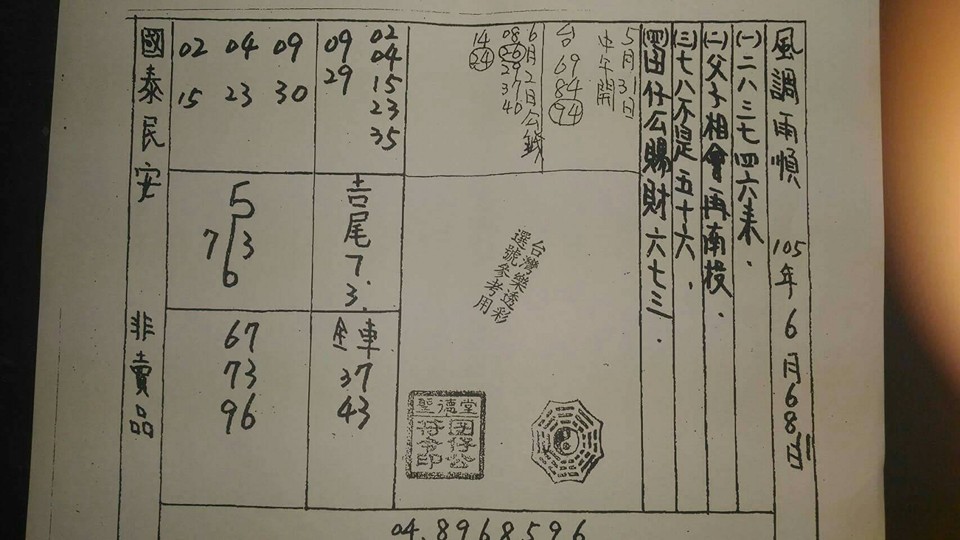 風調雨順 105年6月68日
11
(一)二八三七四六未.
(二)父子相會再南投.
(三)七八不是五十六.
(四)囝仔公賜財六七三.
5月31日
中午開
台 69 84 94
6月2日公錢
08 26 29 37 46
14 24
台灣樂透彩
選號參考用
聖德堂
囝仔公
符令印
02 04 15 23 35
09 29
吉尾 7. 3.
全車 37 43
02 04 09
15 23 30
5
7 3
6
67
73
96
國泰民安 非賣品
04.8968596